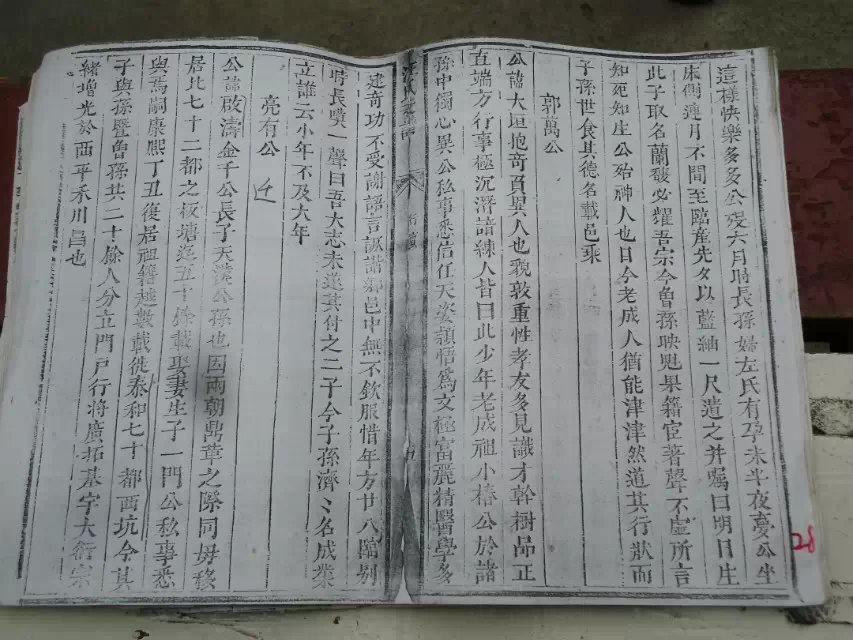 這樣快樂多多公歿六月時長孫婦左氏有孕未半夜夢公坐
床側連月不間至臨產先夕以藍紬一尺遺之并囑曰明日生
此子取名蘭馥必耀吾宗今魯孫映魁果籍宦著聲不虛所言
知死知生公殆神人也日今老成人猶能津津然道其行狀而
子孫世食其德名載邑乘
郭萬公
公諱大垣抱奇負異人也貌敦重性孝友多見識才幹樹品正
直端方行事極沉潛諳練人皆曰此少年老成祖小椿公於諸
孫中獨心異公私事悉信任天姿頴悟為文極富麗精醫學多
建奇功不受謝謗言詼諧鄉邑中無不欽服惜年方廿八臨別
時長嘆一聲曰吾大志未遂其付之二子今子孫濟〻名成業
立誰云小年不及大年
亮有公 近
公諱啟濤金千公長子天漢公孫也因兩朝鼎革之際同母移
居比七十二都之板塘迄五十餘載娶妻生子一門公私事悉
與焉嗣康熙丁丑復居祖籍越數載徙泰和七十都西坑今其
子與孫暨魯孫共二十餘人分立門戶行將廣拓基宇大衍宗
緒增光於西平禾川昌也
28